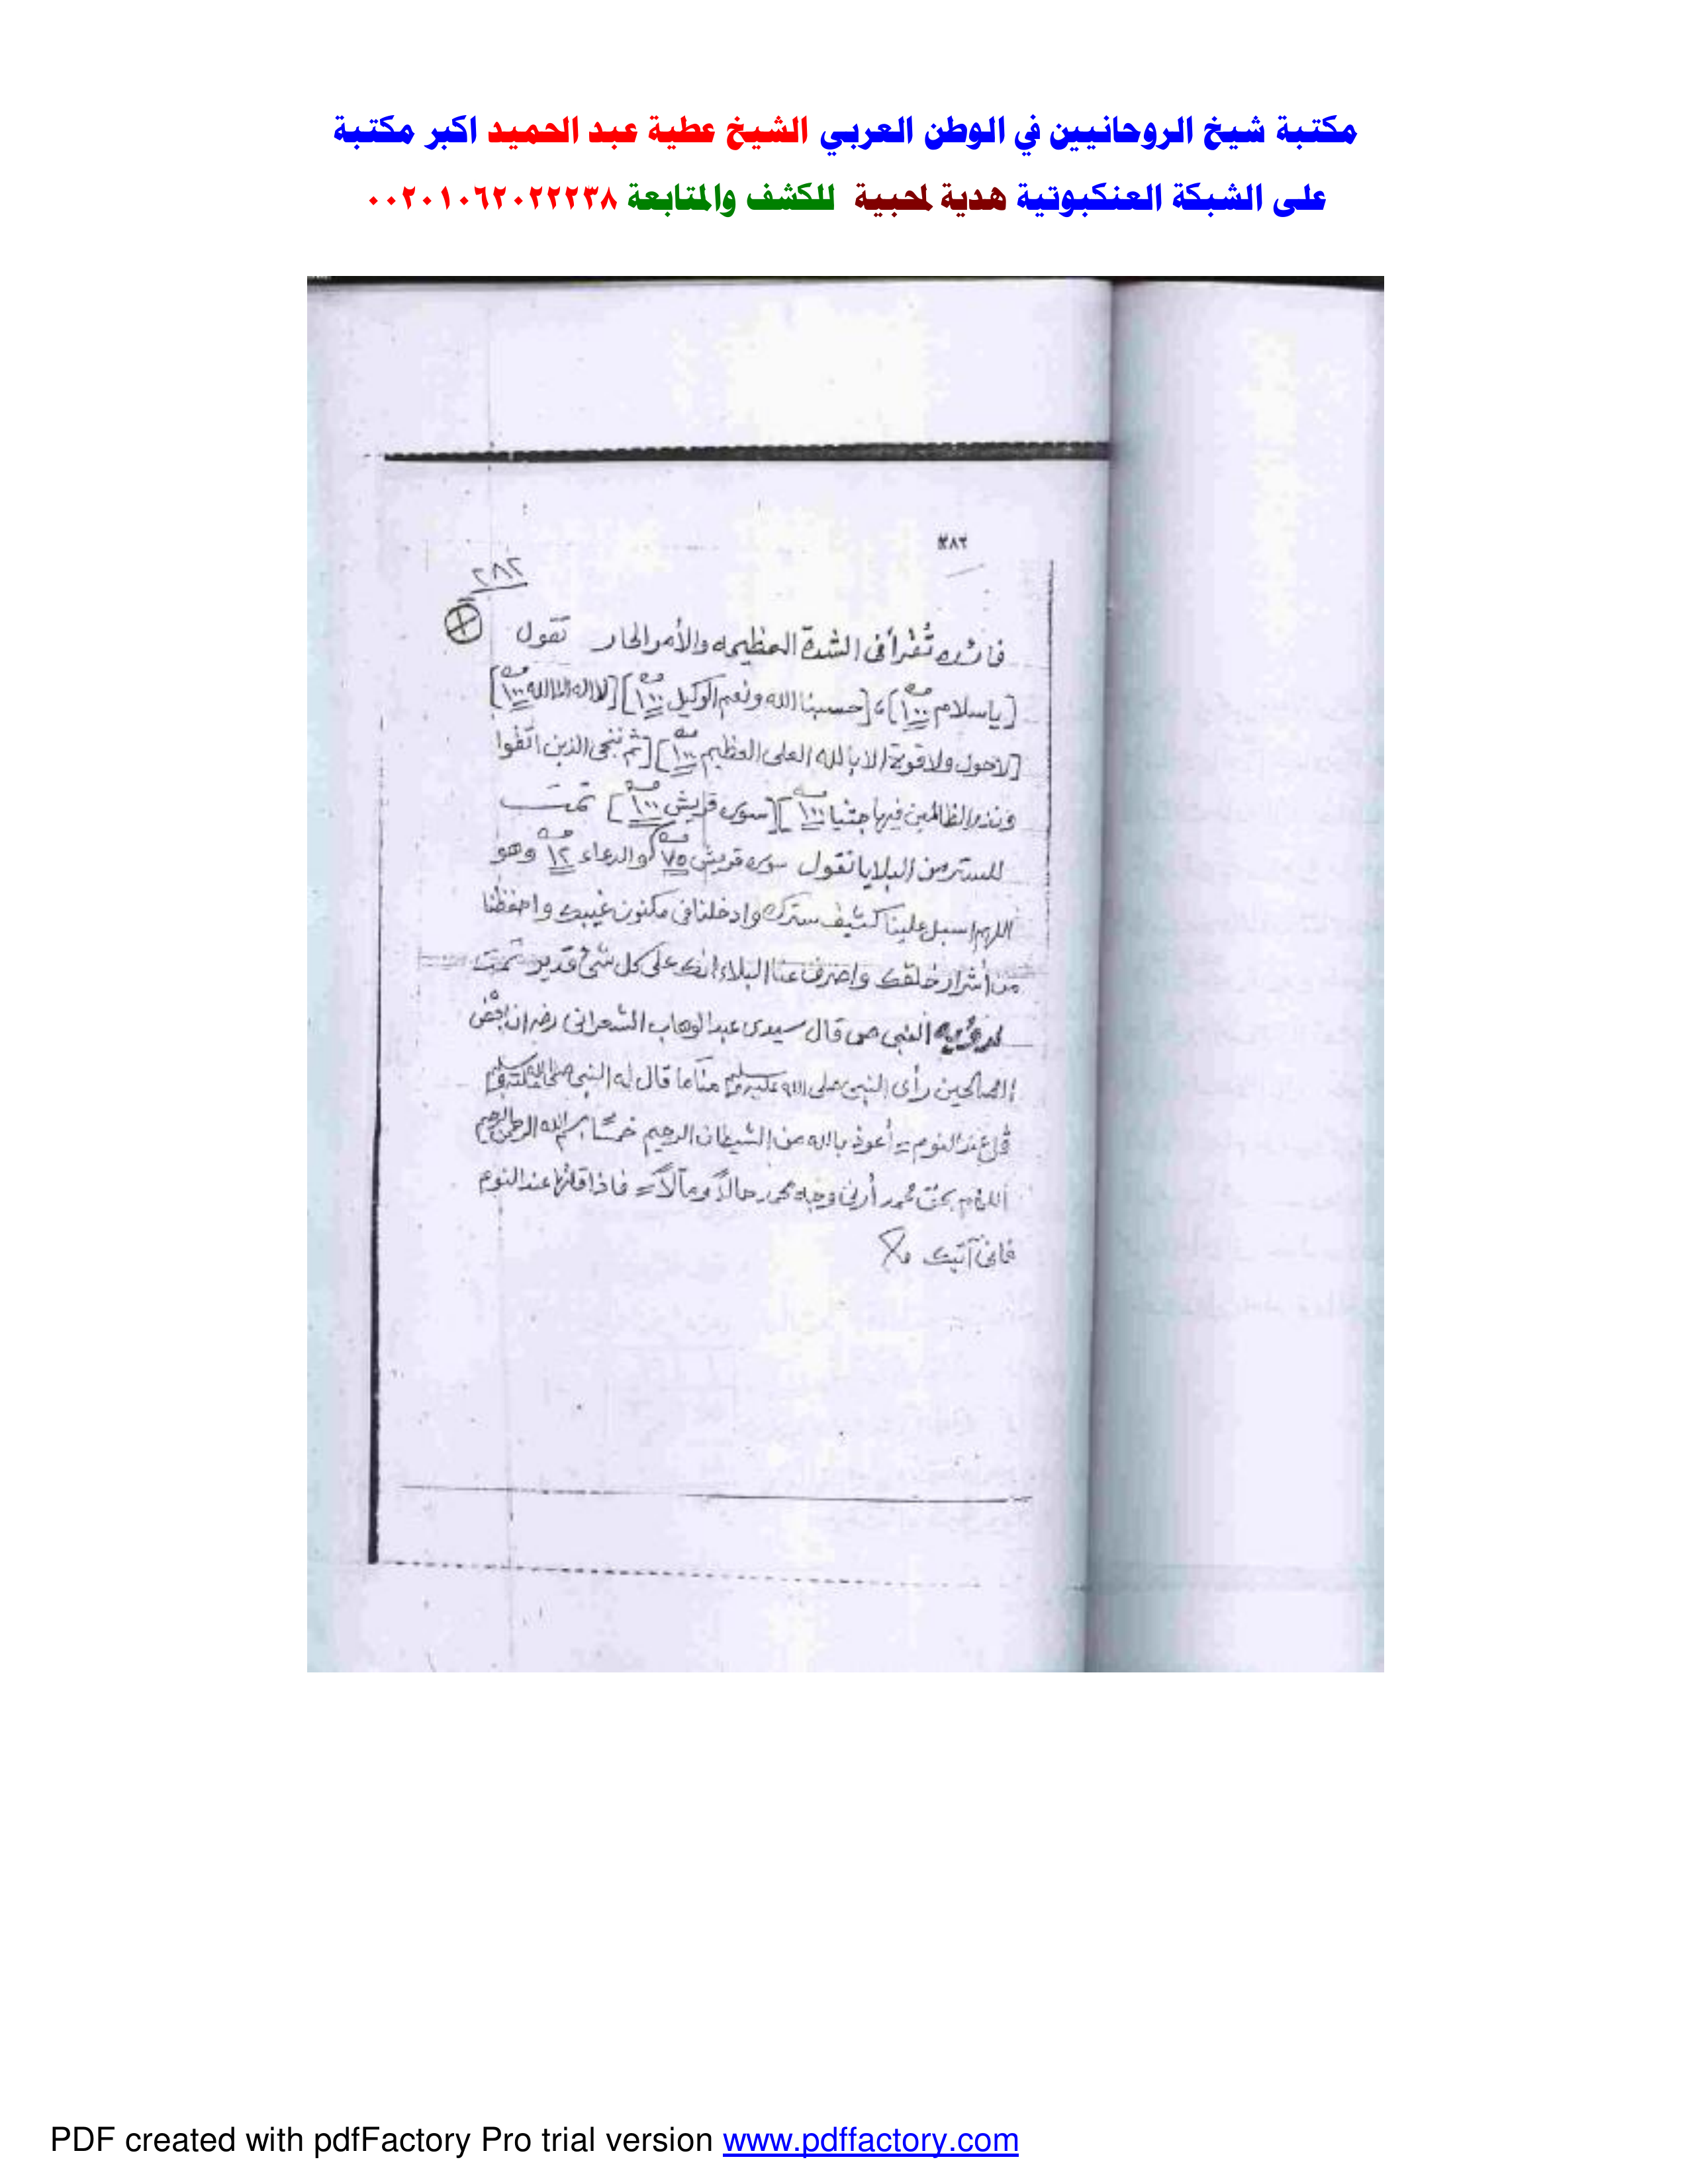 مكتبة شيخ الروحانيين في الوطن العربي الشيخ عطية عبد الحميد اكبر مكتبة
على الشبكة العنكبوتية هدية لمحبية للكشف والمتابعة ٠٠٢٠١٠٦٢٠٢٢٢٣٨
٢٨٢
٢٨٢
فائده تُقْرأ فى الشدة العظيمه والأمر الحار تقول
[ياسلام ١٠٠]، [حسبنا الله ونعم الوكيل ١٠٠] [لا اله الا الله ١٠٠]
[لاحول ولا قوة الا بالله العلى العظيم ١٠٠] [ثم ننجى الذين اتقوا
ونذر الظالمين فيها جثيا ١٠٠] [سورة قريش ١٠٠] تمت
للستر من البلايا تقول سوره قريش ٧٥ والدعاء ١٢ وهو
اللهم اسبل علينا كثيف سترك وادخلنا فى مكنون غيبك واحفظنا
من أشرار خلقك واصرف عنا البلاء انك على كل شئ قدير تمت
لرؤيه النبى ص قال سيدى عبد الوهاب الشعرانى ان بعض
الصالحين رأى النبى صلى الله عليه وسلم مناما قال له النبى صلى الله عليه وسلم
قل عند النوم = أعوذ بالله من الشيطان الرجيم خمسًا بسم الله الرحمن الرحيم
اللهم بحق محمد أرنى وجه محمد حالاً ومآلاً = فاذا قلتها عند النوم
فانى آتيك
PDF created with pdfFactory Pro trial version www.pdffactory.com